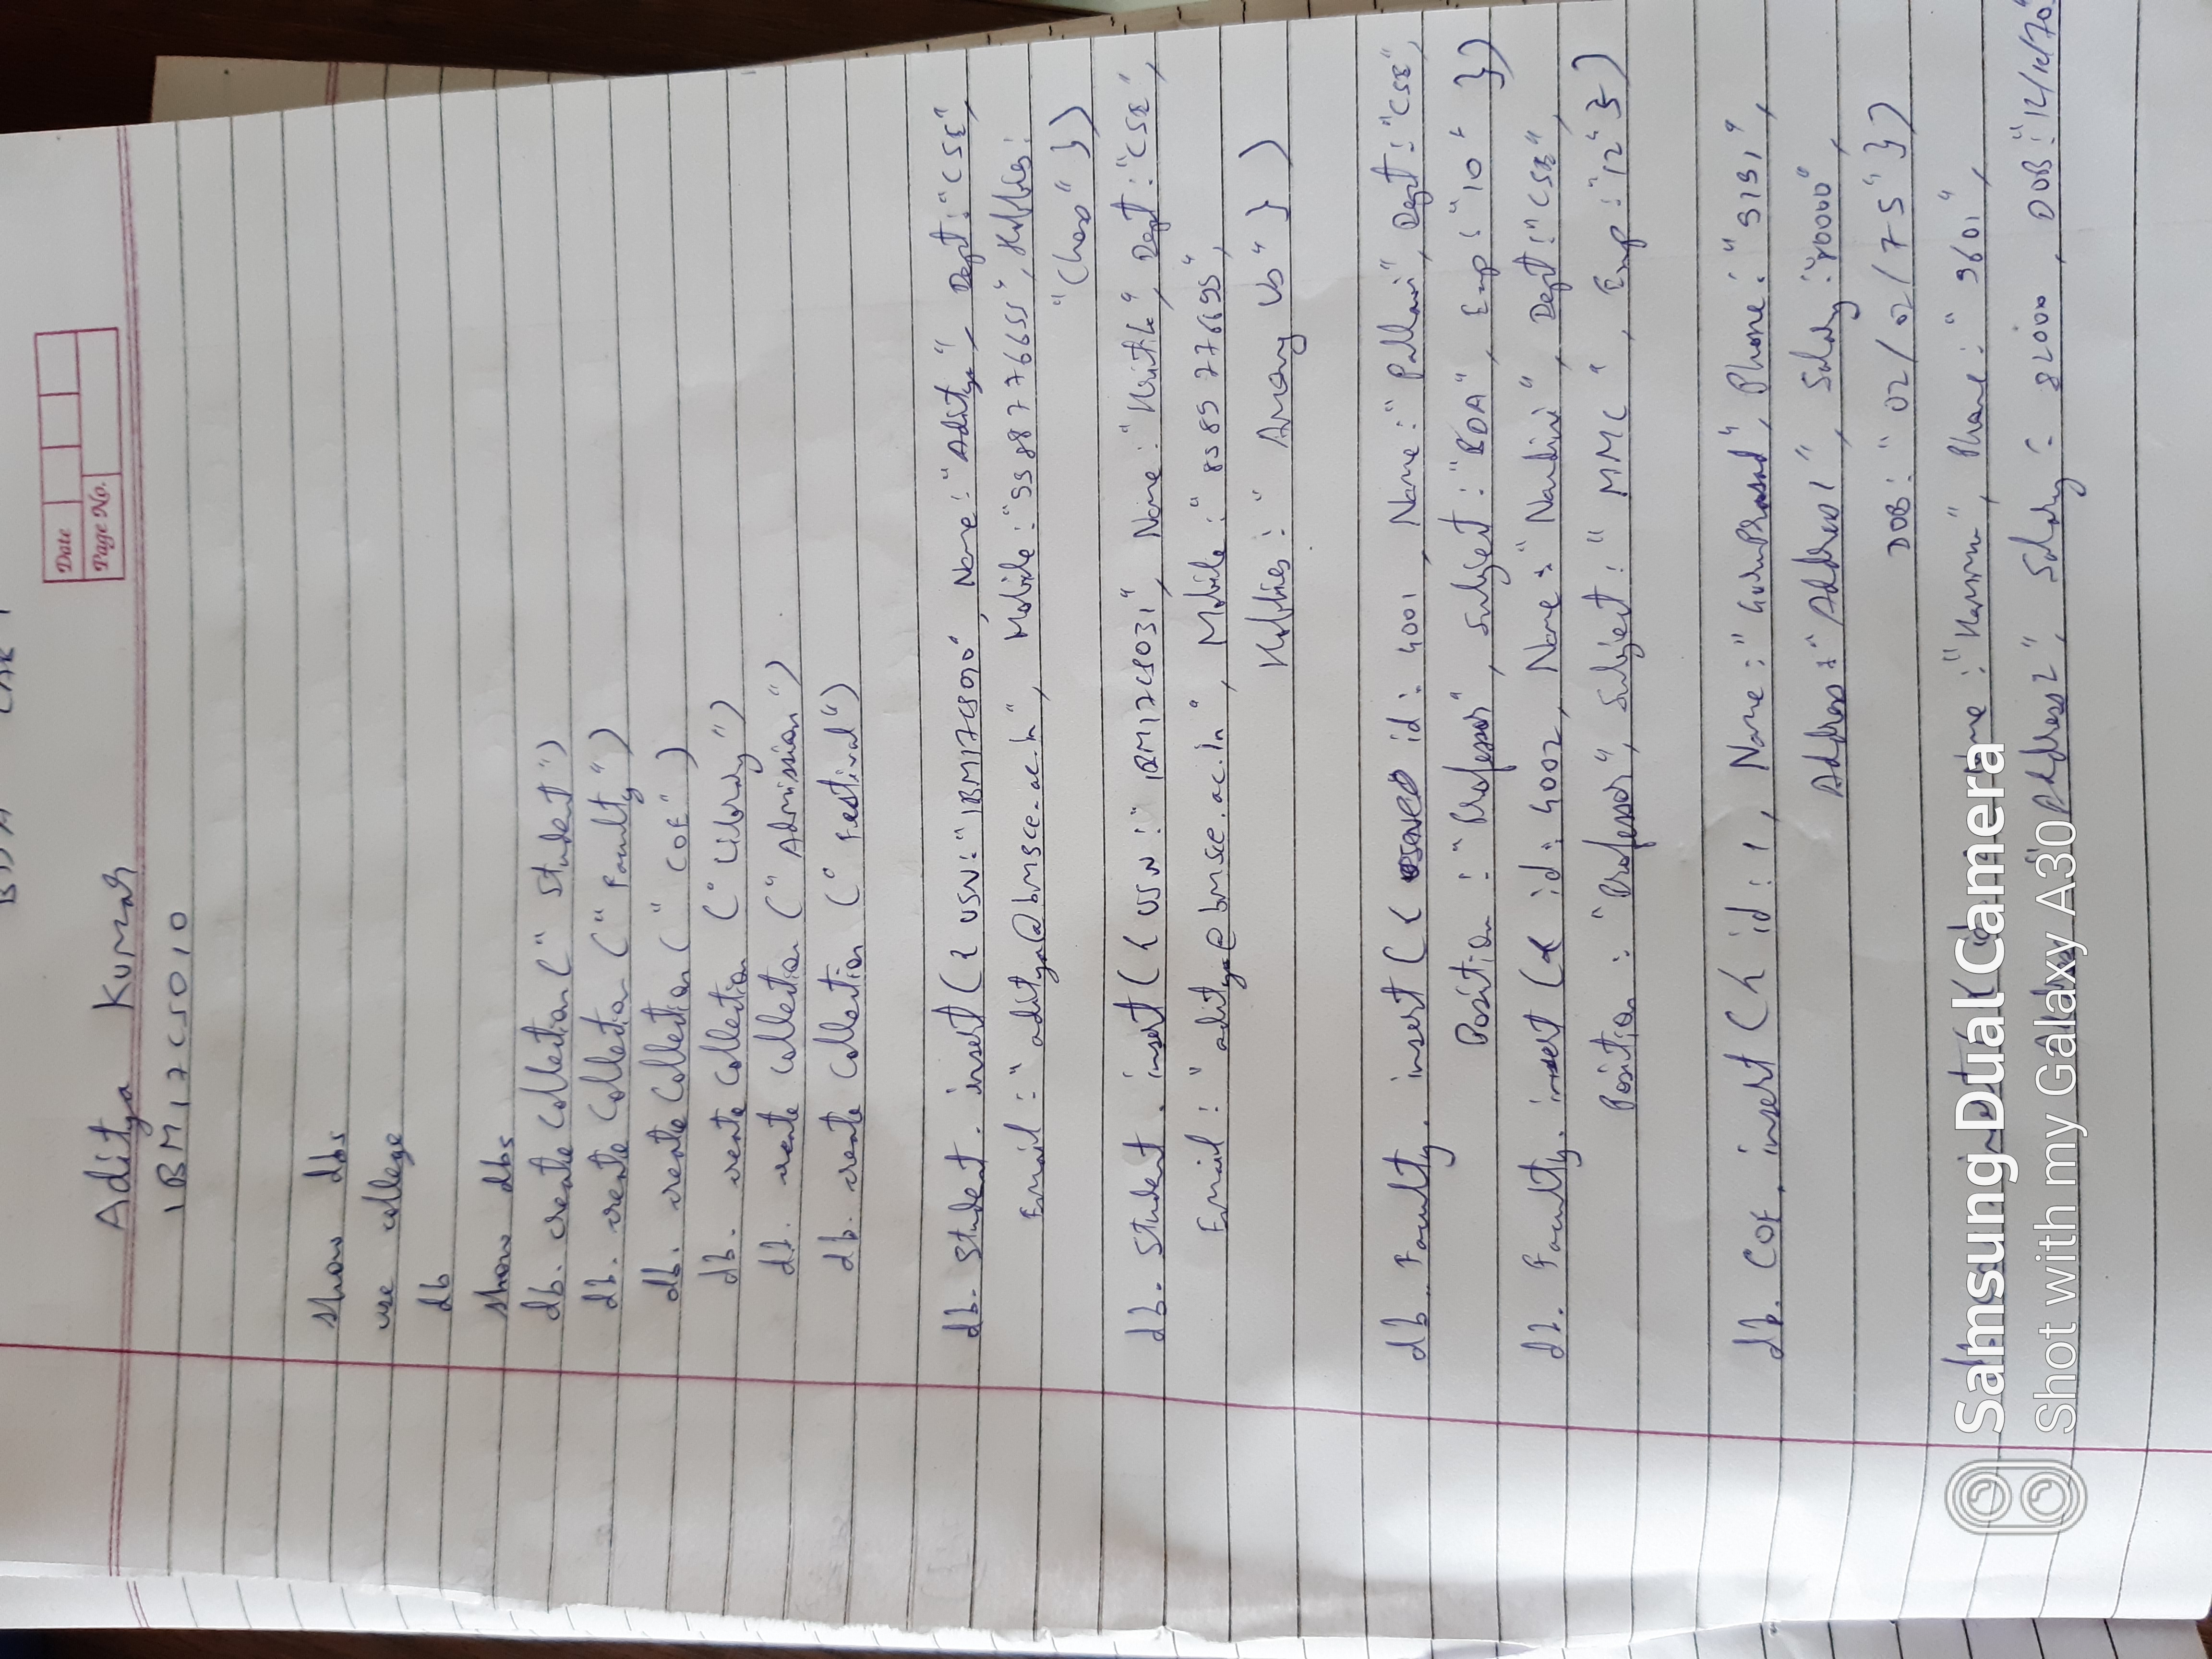 BDA LAB 1
Date
Page No.
Aditya Kumar
1BM17CS010
show dbs
use college
db
show dbs
db. create Collection (" Student ")
db. create Collection (" Faculty ")
db. create Collection (" COE " )
db. create Collection (" Library ")
db. create Collection (" Admission ")
db. create Collection (" Festival ")
db. Student . insert ( { USN : " 1BM17CS010 " , Name : " Aditya " , Dept : " CSE ",
Email : " aditya@bmsce.ac.in ", Mobile : " 9988776655 " , Hobbies :
" Chess " } )
db. Student . insert ( { USN : " 1BM17CS031 ", Name : Dept : " CSE ",
Email : " aditya@bmsce.ac.in " , Mobile : " 8989776695 ",
Hobbies : " Among Us " } )
db. Faculty . insert ( { id : 4001 , Name : " Pallavi ", Dept : " CSE ",
Position : " Professor " , Subject : " BDA " , Exp : " 10 " } )
db. Faculty . insert ( { id : 4002, Name : " Nandini " , Dept : " CSE ",
Position : " Professor ", Subject : " MMC " , Exp : " 12 " } )
db. COE . insert ( { id : 1 , Name : " GuruPrasad ", Phone : " 9191 ",
Address : " Address 1 ", Salary : " 80000 ",
DOB : " 02 / 02 / 75 " } )
insert ( { id Name : Phone : " 9601 ",
Address " Address 2 ", Salary : 82000 , DOB :
Samsung Dual Camera
Shot with my Galaxy A30